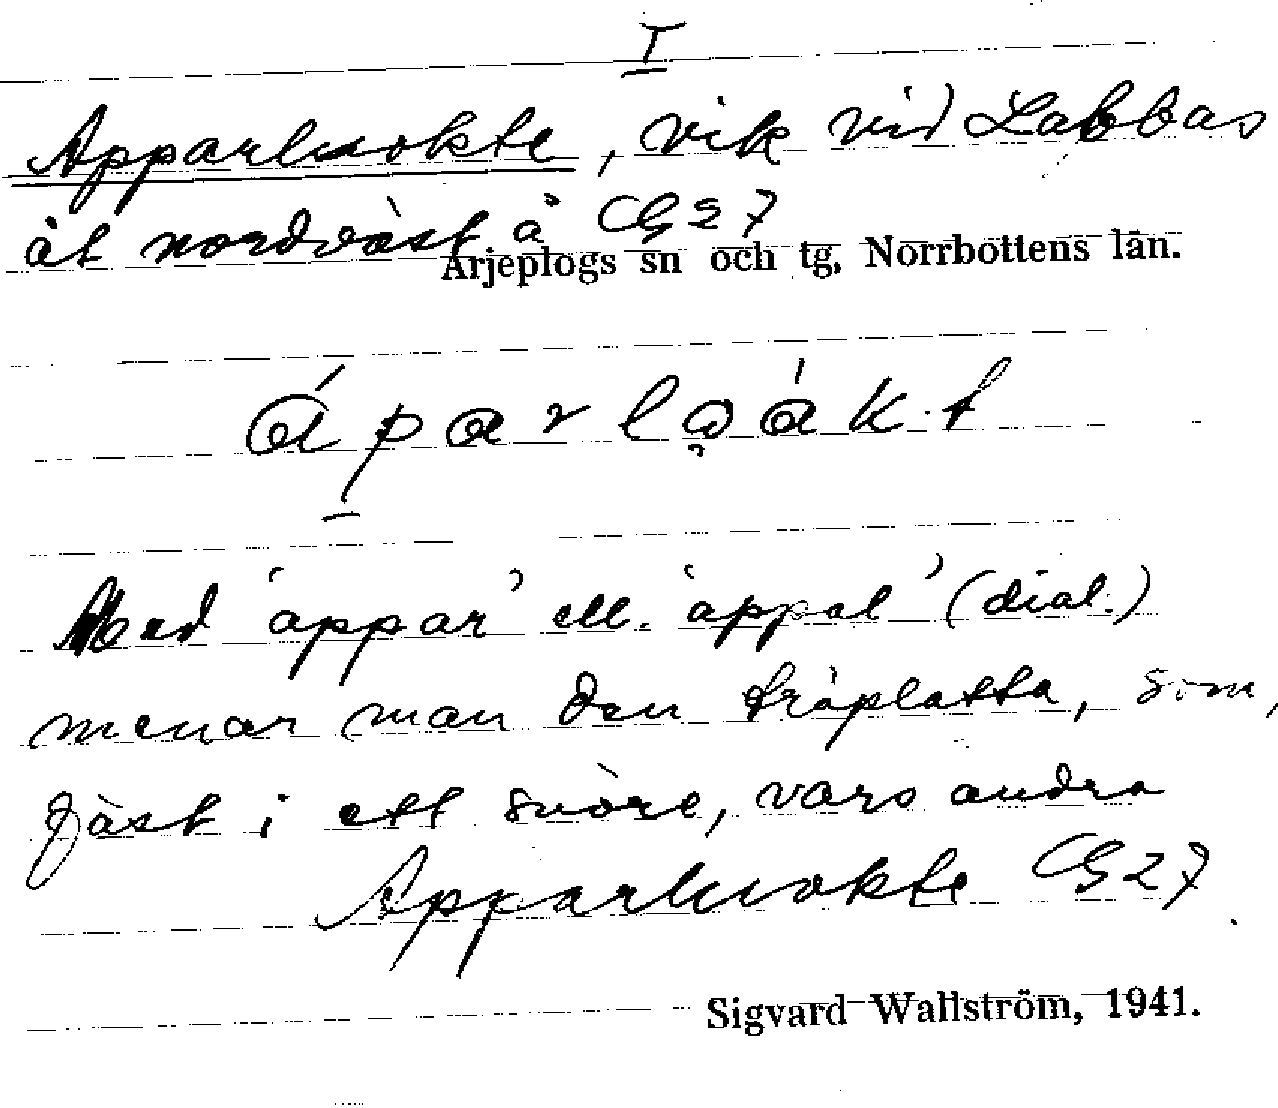 I
Apparluokte, vik vid Labbas
åt nordväst å CG27
Arjeplogs sn och tg, Norrbottens län.
Med 'appar' ell. 'appal' (dial.)
menar man den träplatta, som,
fäst i ett snöre, vars andra
Apparluokte CG27
Sigvard Wallström, 1941.